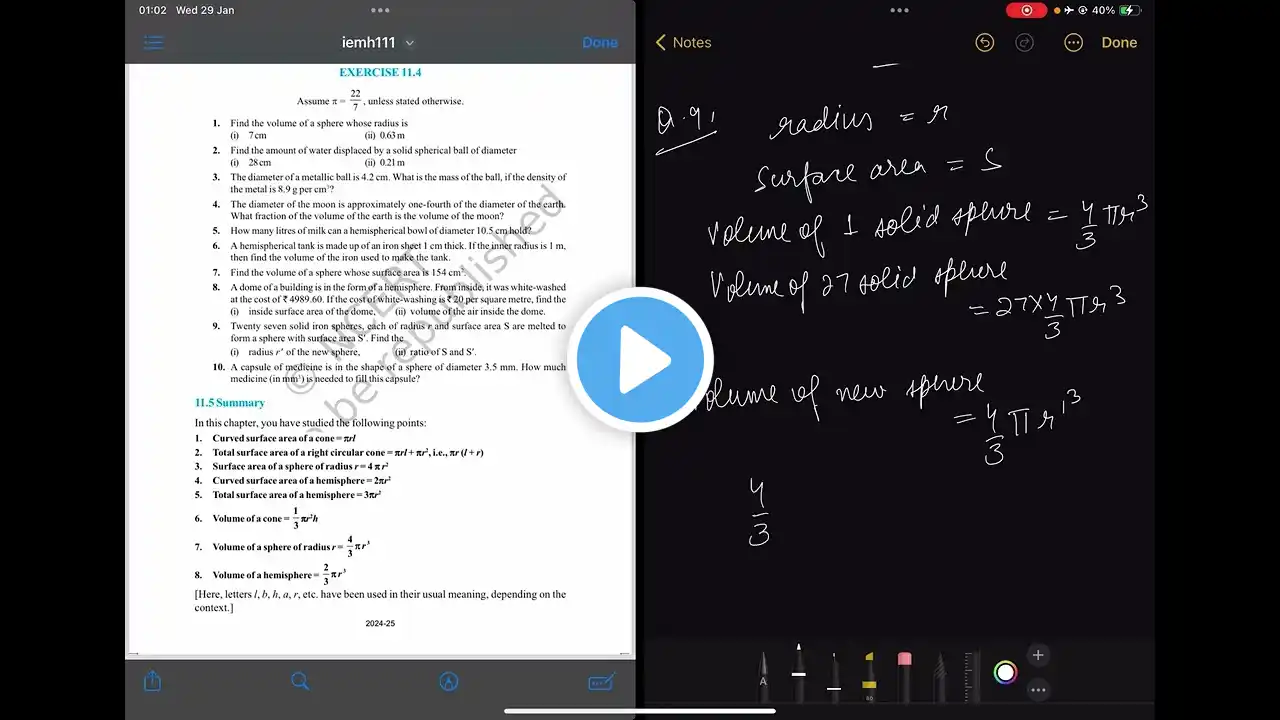 01:02 Wed 29 Jan
iemh111
Done
EXERCISE 11.4
Assume π = 22/7, unless stated otherwise.
1. Find the volume of a sphere whose radius is
(i) 7 cm (ii) 0.63 m
2. Find the amount of water displaced by a solid spherical ball of diameter
(i) 28 cm (ii) 0.21 m
3. The diameter of a metallic ball is 4.2 cm. What is the mass of the ball, if the density of
the metal is 8.9 g per cm³?
4. The diameter of the moon is approximately one-fourth of the diameter of the earth.
What fraction of the volume of the earth is the volume of the moon?
5. How many litres of milk can a hemispherical bowl of diameter 10.5 cm hold?
6. A hemispherical tank is made up of an iron sheet 1 cm thick. If the inner radius is 1 m,
then find the volume of the iron used to make the tank.
7. Find the volume of a sphere whose surface area is 154 cm².
8. A dome of a building is in the form of a hemisphere. From inside, it was white-washed
at the cost of ₹ 4989.60. If the cost of white-washing is ₹ 20 per square metre, find the
(i) inside surface area of the dome, (ii) volume of the air inside the dome.
9. Twenty seven solid iron spheres, each of radius r and surface area S are melted to
form a sphere with surface area S′. Find the
(i) radius r′ of the new sphere, (ii) ratio of S and S′.
10. A capsule of medicine is in the shape of a sphere of diameter 3.5 mm. How much
medicine (in mm³) is needed to fill this capsule?
© NCERT
be republished
11.5 Summary
In this chapter, you have studied the following points:
1. Curved surface area of a cone = πrl
2. Total surface area of a right circular cone = πrl + πr², i.e., πr (l + r)
3. Surface area of a sphere of radius r = 4 π r²
4. Curved surface area of a hemisphere = 2πr²
5. Total surface area of a hemisphere = 3πr²
6. Volume of a cone = 1/3 πr²h
7. Volume of a sphere of radius r = 4/3 π r³
8. Volume of a hemisphere = 2/3 π r³
[Here, letters l, b, h, a, r, etc. have been used in their usual meaning, depending on the
context.]
2024-25
40%
Notes
Done
Q.9, radius = r
Surface area = S
Volume of 1 solid sphere = 4/3 πr³
Volume of 27 solid sphere
= 27 × 4/3 πr³
Volume of new sphere
= 4/3 π r'³
4/3
A
50